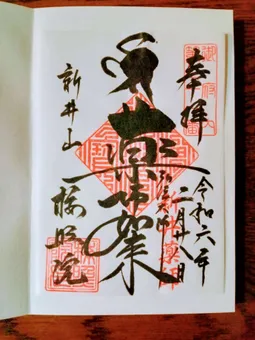 奉拝
令和六年
二月廿八日
新井薬師
薬師如来
新井山
梅照院